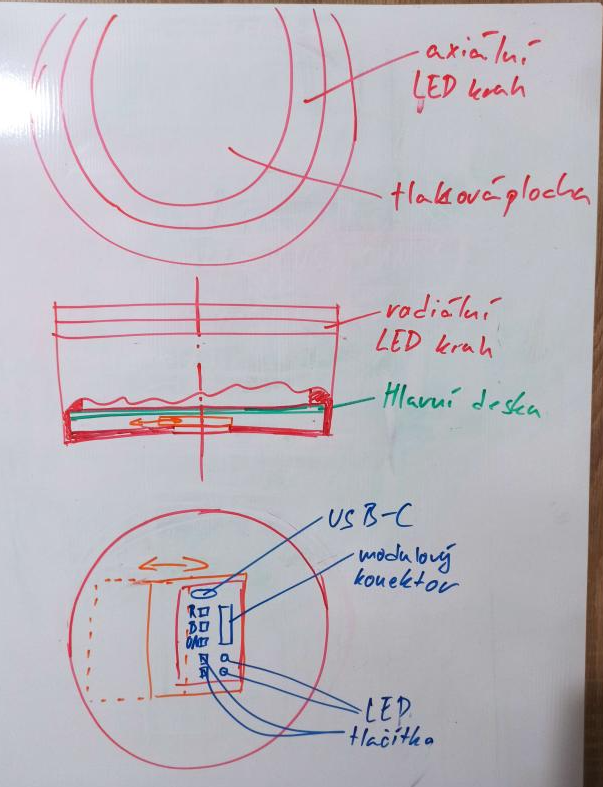 axiální
LED kruh
tlaková plocha
radiální
LED kruh
Hlavní deska
USB-C
modulový
konektor
R
B
LED
tlačítka